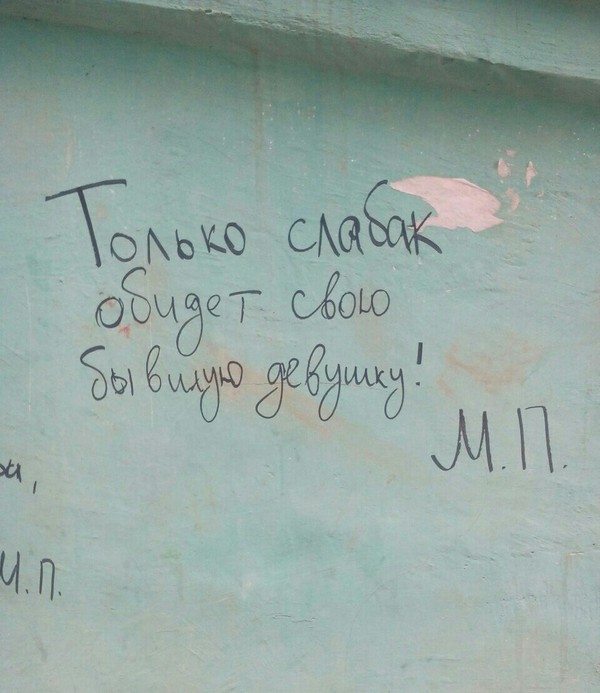 Только слабак
обидет свою
бывшую девушку!
М.П.
и,
М.П.